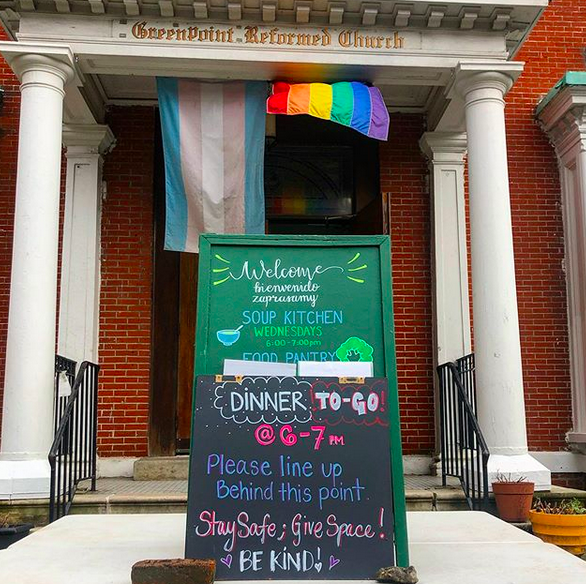 GreenPoint Reformed Church
Welcome
bienvenido
zapraszamy
SOUP KITCHEN
WEDNESDAYS
6:00-7:00pm
FOOD PANTRY
DINNER TO-GO!
@ 6-7 PM
Please line up
Behind this point.
Stay Safe; Give Space!
BE KIND!